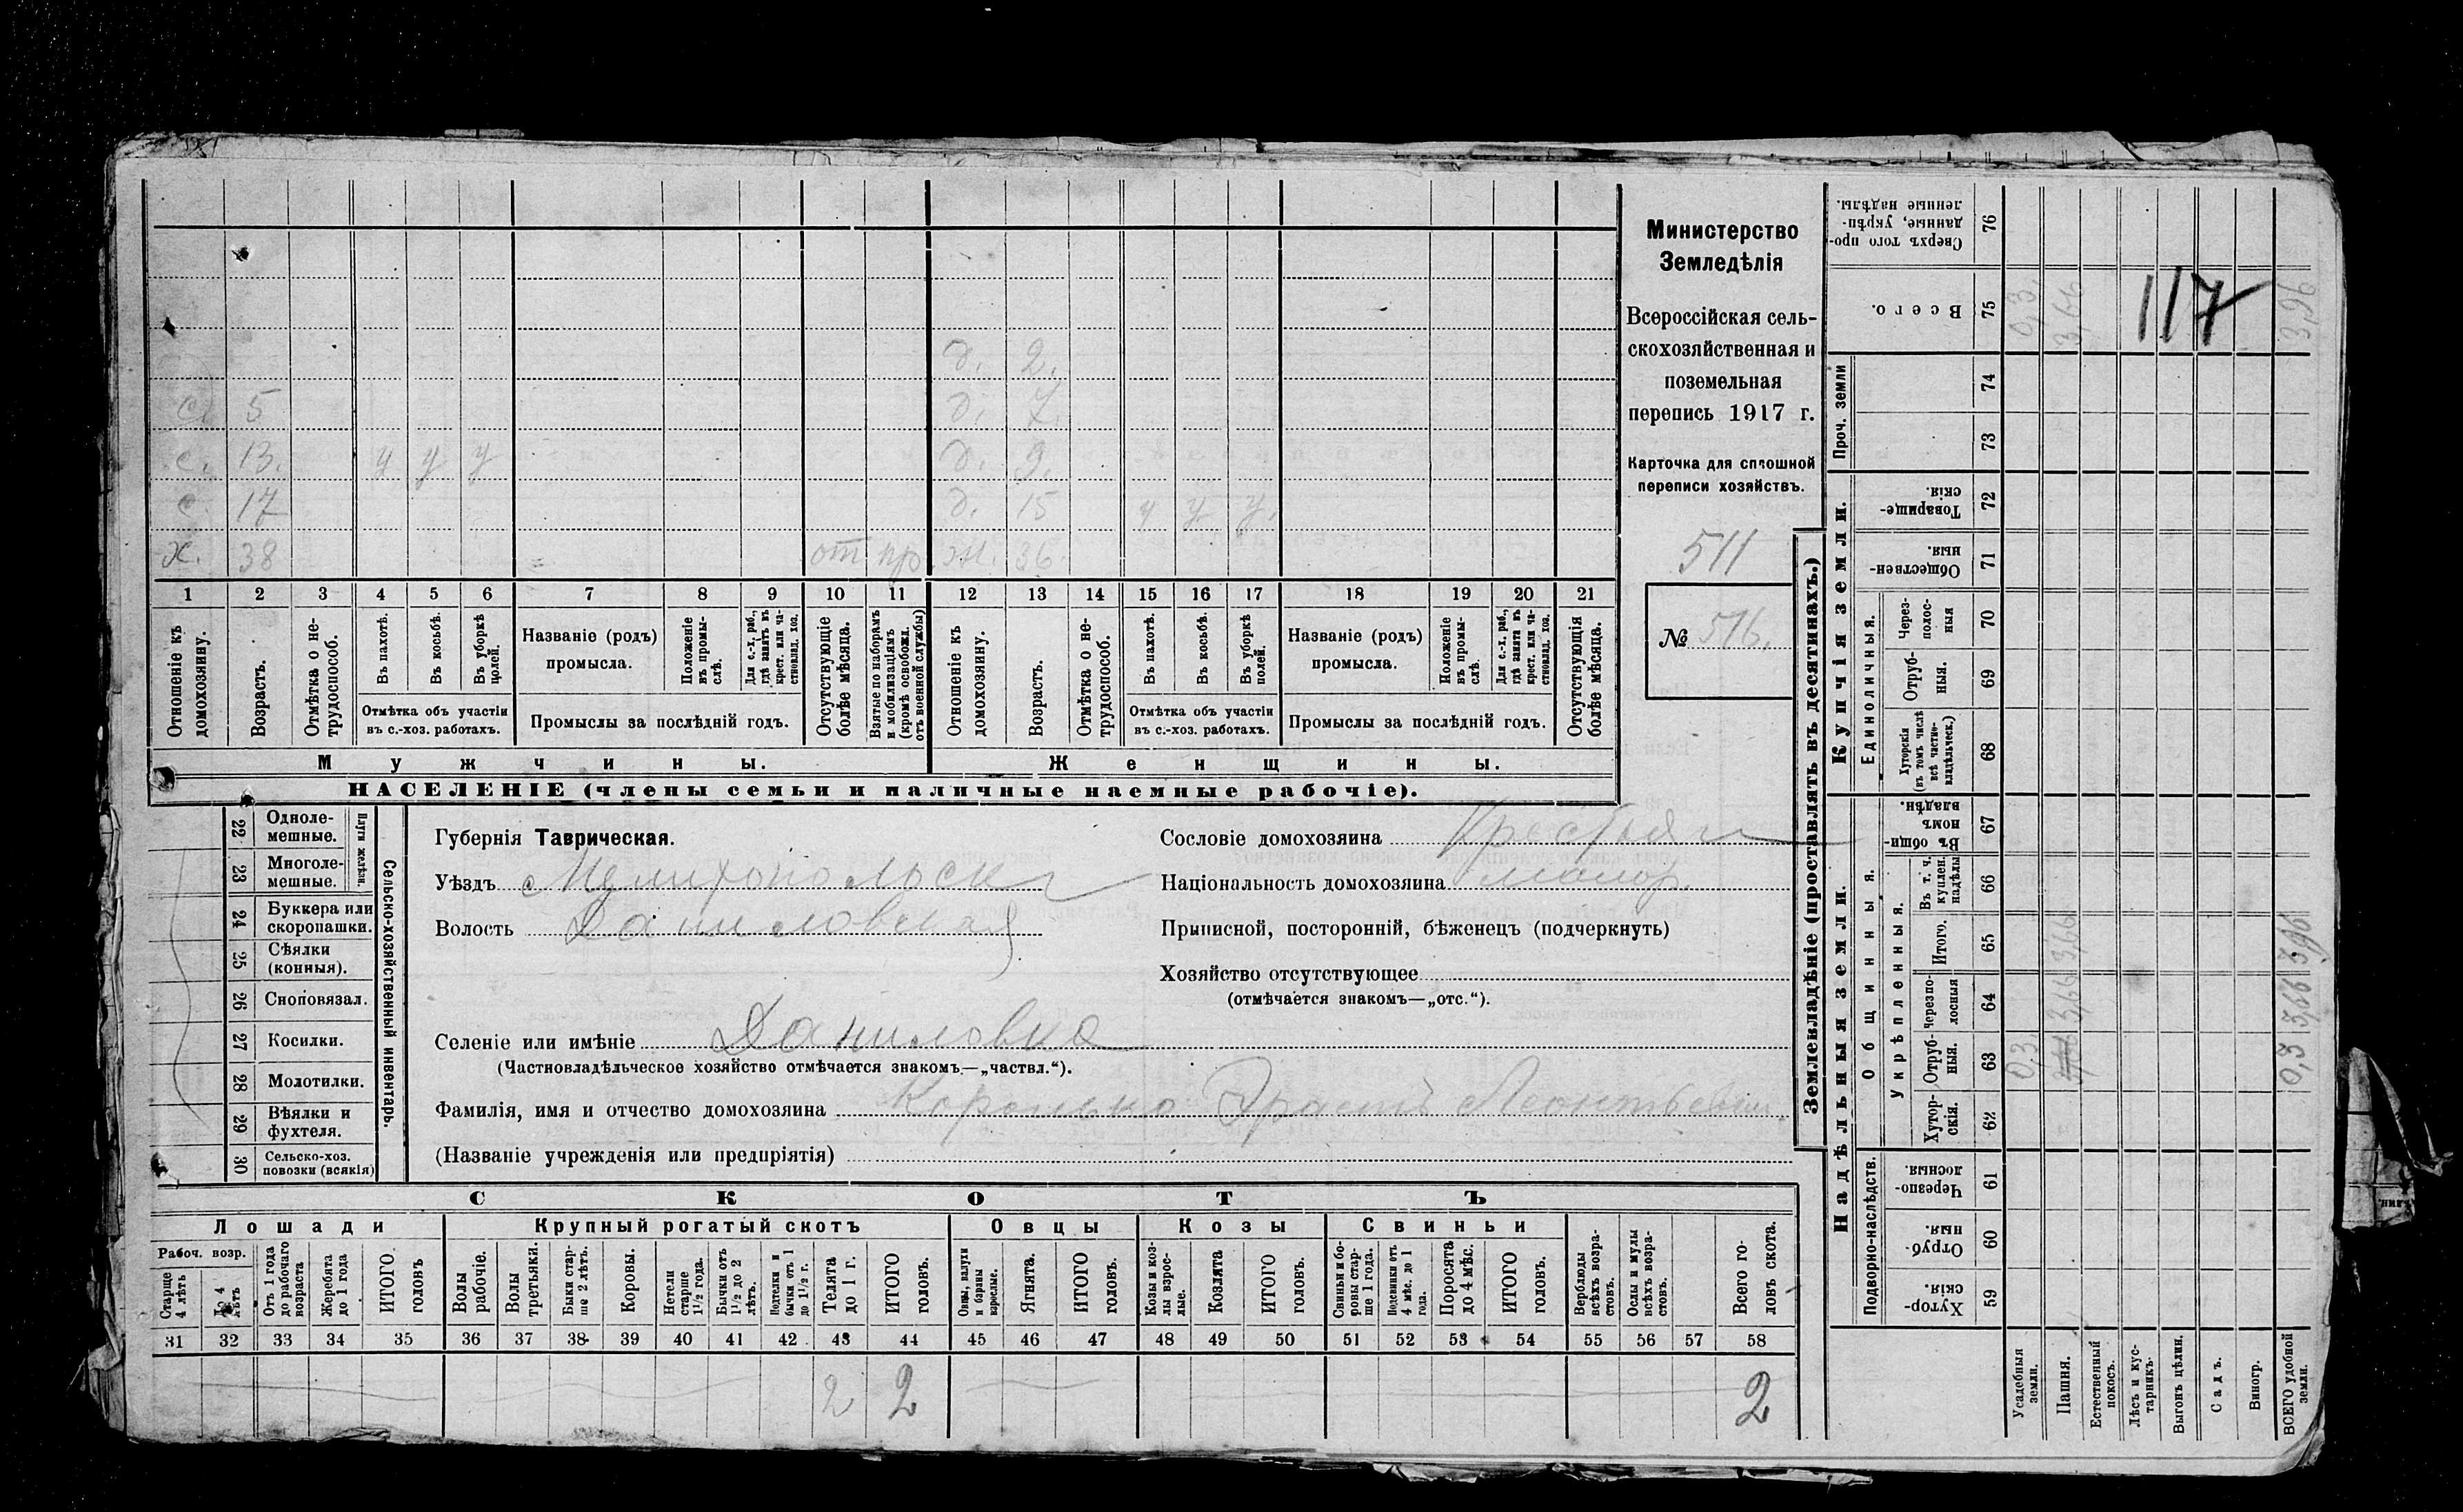 Министерство
Земледѣлія
Всероссійская сель-
скохозяйственная и
поземельная
перепись 1917 г.
Карточка для сплошной
переписи хозяйствъ.
511
№ 516.
117
д. 2.
с. 5 д. 7.
с. 13. у у у д. 9.
с. 17 д. 15 у у у.
х. 38 от пр. ж. 36.
1 2 3 4 5 6 7 8 9 10 11 12 13 14 15 16 17 18 19 20 21
Отношеніе къ домохозяину.
Возрастъ.
Отмѣтка о не-трудоспособ.
Въ пахотѣ.
Въ косьбѣ.
Въ уборкѣ полей.
Отмѣтка объ участіи
въ с.-хоз. работахъ.
Названіе (родъ)
промысла.
Положеніе въ промы-слѣ.
Для с.-х. раб., гдѣ занятъ въ крест. или ча-стновлад. хоз.
Промыслы за послѣдній годъ.
Отсутствующіе болѣе мѣсяца.
Взятые по наборамъ и мобилизаціямъ (кромѣ освобожд. отъ военной службы)
Отношеніе къ домохозяину.
Возрастъ.
Отмѣтка о не-трудоспособ.
Въ пахотѣ.
Въ косьбѣ.
Въ уборкѣ полей.
Отмѣтка объ участіи
въ с.-хоз. работахъ.
Названіе (родъ)
промысла.
Положеніе въ промы-слѣ.
Для с.-х. раб., гдѣ занята въ крест. или ча-стновлад. хоз.
Промыслы за послѣдній годъ.
Отсутствующія болѣе мѣсяца.
Мужчины. Женщины.
НАСЕЛЕНІЕ (члены семьи и наличные наемные рабочіе).
22 Одноле-мешные.
23 Многоле-мешные.
Плуги желѣзн.
24 Буккера или скоропашки.
25 Сѣялки (конныя).
26 Сноповязал.
27 Косилки.
28 Молотилки.
29 Вѣялки и фухтеля.
30 Сельско-хоз. повозки (всякія)
Сельско-хозяйственный инвентарь.
Губернія Таврическая.
Уѣздъ Мелитопольскі
Волость Даниловская
Селеніе или имѣніе Даниловка
(Частновладѣльческое хозяйство отмѣчается знакомъ—„частвл.“).
Фамилія, имя и отчество домохозяина Коронько Эрастъ Леонтьевичъ
(Названіе учрежденія или предпріятія)
Сословіе домохозяина Крестьян
Національность домохозяина малор.
Приписной, посторонній, бѣженецъ (подчеркнуть)
Хозяйство отсутствующее
(отмѣчается знакомъ—„отс.“).
СКОТЪ
Лошади Крупный рогатый скотъ Овцы Козы Свиньи
Рабоч. возр.
Старше 4 лѣтъ
До 4 лѣтъ
Отъ 1 года до рабочаго возраста
Жеребята до 1 года
ИТОГО головъ
Волы рабочіе.
Волы третьяки.
Быки стар-ше 2 лѣтъ.
Коровы.
Нетели старше 1½ года.
Бычки отъ 1½ до 2 лѣтъ.
Подтелки и бычки отъ 1 до 1½ г.
Телята до 1 г.
ИТОГО головъ.
Овцы, валухи и бараны взрослые.
Ягнята.
ИТОГО головъ.
Козы и коз-лы взрос-лые.
Козлята
ИТОГО головъ.
Свиньи и бо-ровы стар-ше 1 года.
Подсвинки отъ 4 мѣс. до 1 года.
Поросята до 4 мѣс.
ИТОГО головъ.
Верблюды всѣхъ возра-стовъ.
Ослы и мулы всѣхъ возра-стовъ.
Всего го-ловъ скота.
31 32 33 34 35 36 37 38 39 40 41 42 43 44 45 46 47 48 49 50 51 52 53 54 55 56 57 58
2 2 2
Землевладѣніе (проставлять въ десятинахъ.)
Сверхъ того про-данные, укрѣп-ленные надѣлы. 76
Всего. 75 0,3 3,66 3,96
Проч. земли 74 73
Купчія земли.
Товарище-скія. 72
Обществен-ныя. 71
Единоличныя.
Через-полос-ныя 70
Отруб-ныя. 69
Хуторскія (въ томъ числѣ всѣ частно-владѣльческ.) 68
Надѣльныя земли.
Общинныя.
Въ общи номъ владѣн. 67
Укрѣпленныя.
Въ т. ч. куплен. надѣлы 66
Итого. 65 3,66 3,96
Черезпо-лосныя 64 3,66 3,66
Отруб-ныя. 63 0,3 0,3
Хутор-скія. 62
Подворно-наслѣдств.
Черезпо-лосныя. 61
Отруб-ныя. 60
Хутор-скія. 59
Усадебныя земли.
Пашня.
Естественный покосъ.
Лѣсъ и кус-тарникъ.
Выгонъ цѣлин.
Садъ.
Виногр.
ВСЕГО удобной земли.